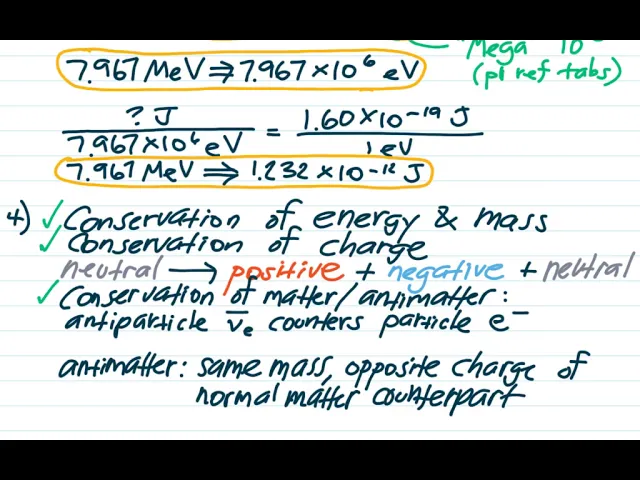 Mega 10
7.967 MeV ⇒ 7.967 × 10⁶ eV
(p1 ref tabs)
? J / 7.967 × 10⁶ eV = 1.60 × 10⁻¹⁹ J / 1 eV
7.967 MeV ⇒ 1.232 × 10⁻¹² J
4) ✓ Conservation of energy & mass
✓ Conservation of charge
neutral → positive + negative + neutral
✓ Conservation of matter/antimatter:
antiparticle ν̄ₑ counters particle e⁻
antimatter: same mass, opposite charge of
normal matter counterpart